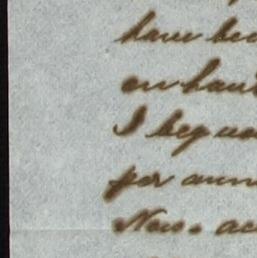 have bee
on hand
I beg
per ann
Nov. ac